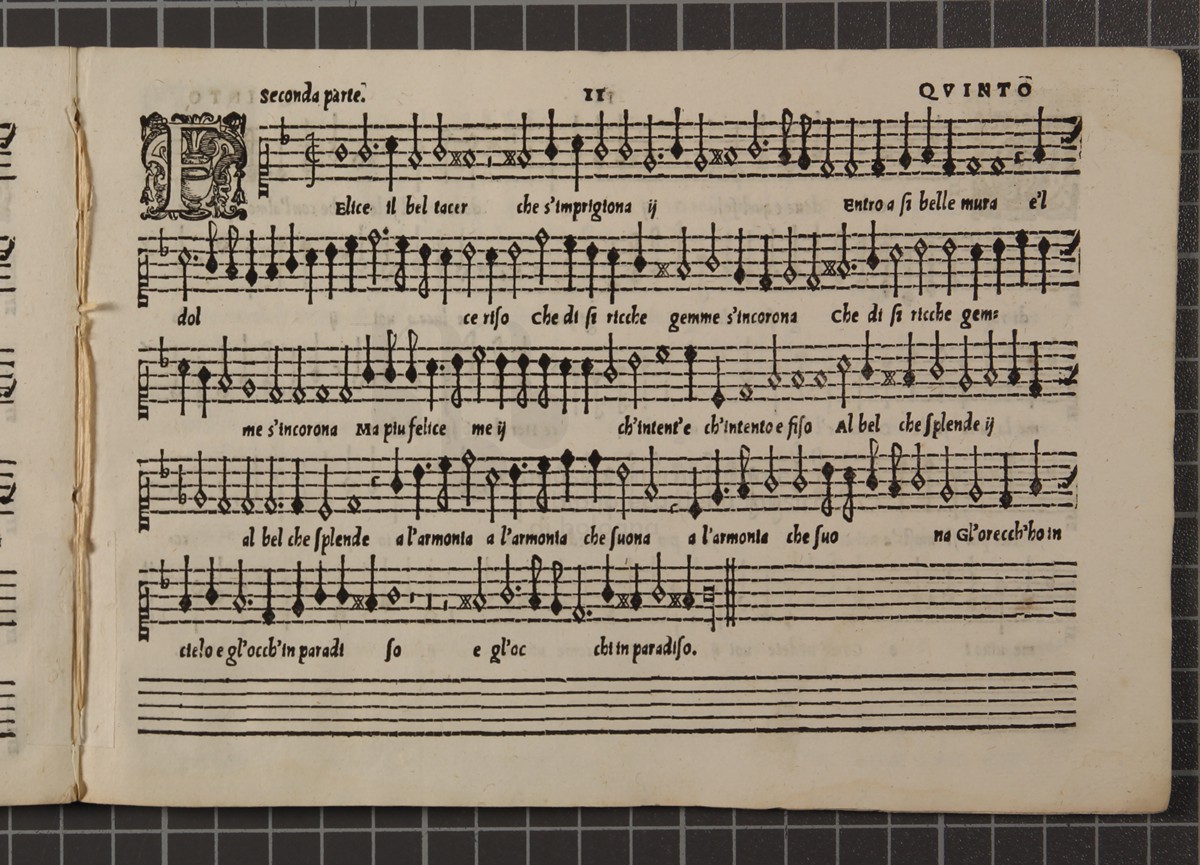 Seconda parte. II QVINTO
FElice il bel tacer che s'imprigiona ij Entro a si belle mura e'l
dol ce riso Che di si ricche gemme s'incorona Che di si ricche gem=
me s'incorona Ma piu felice me ij ch'intent'e ch'intento e fiso Al bel che splende ij
al bel che splende a l'armonia a l'armonia che suona a l'armonia che suo na Gl'orecch'ho in
cielo e gl'occh'in paradi so e gl'oc chi in paradiso.